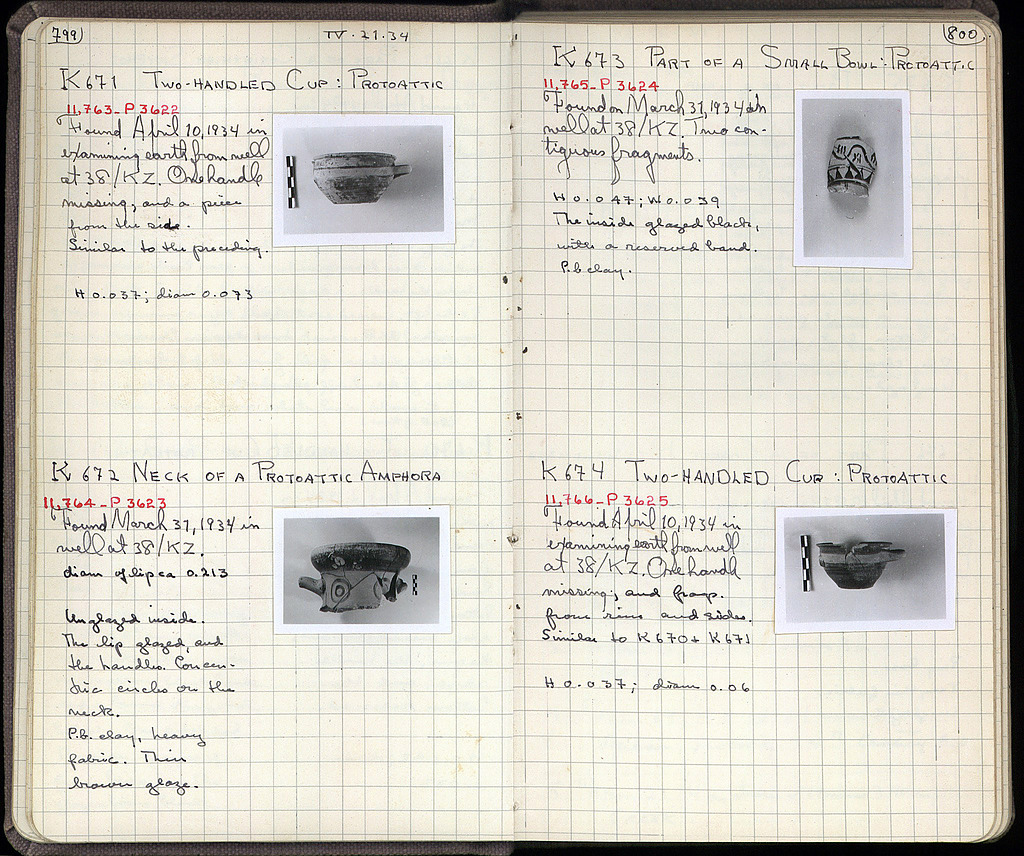 799
IV·21·34
K 671 TWO-HANDLED CUP: PROTOATTIC
11,763 - P 3622
Found April 10, 1934 in
examining earth from well
at 38/KZ. One handle
missing; and a piece
from the side.
Similar to the preceding.
H 0.037; diam 0.073
K 672 NECK OF A PROTOATTIC AMPHORA
11,764 - P 3623
Found March 31, 1934 in
well at 38/KZ.
diam of lip ca 0.213
Unglazed inside.
The lip glazed, and
the handles. Concen-
tric circles on the
neck.
P.b. clay, heavy
fabric. Thin
brown glaze.
800
K 673 PART OF A SMALL BOWL: PROTOATTIC
11,765 - P 3624
Found on March 31, 1934 in
well at 38/KZ. Two con-
tiguous fragments.
H 0.047; W 0.039
The inside glazed black,
with a reserved band.
P.b clay.
K 674 TWO-HANDLED CUP: PROTOATTIC
11,766 - P 3625
Found April 10, 1934 in
examining earth from well
at 38/KZ. One handle
missing; and frag.
from rim and sides.
Similar to K 670 + K 671
H 0.037; diam 0.06